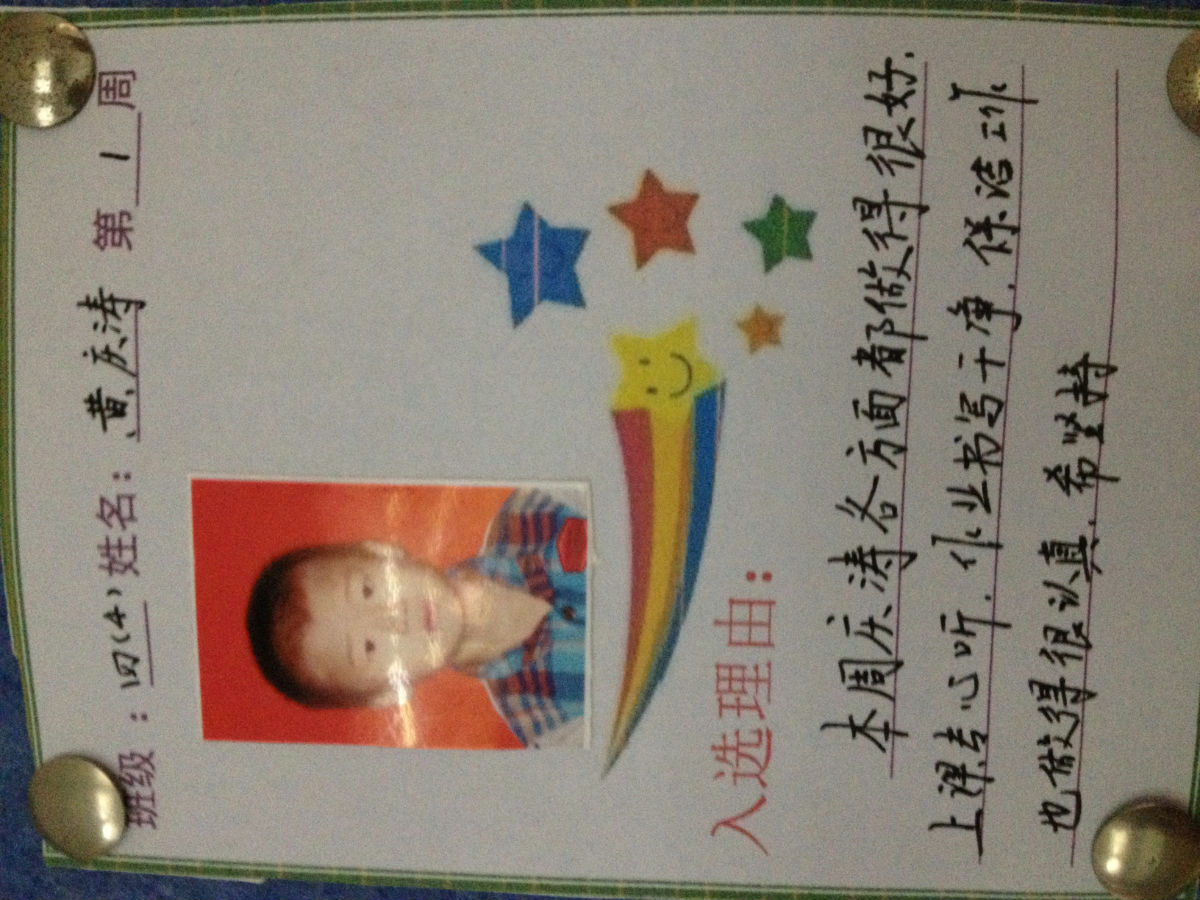 班级：四(4)姓名：黄庆涛 第 1 周
入选理由：
本周庆涛各方面都做得很好.
上课专心听.作业书写干净.保洁工作
也做得很认真.希坚持